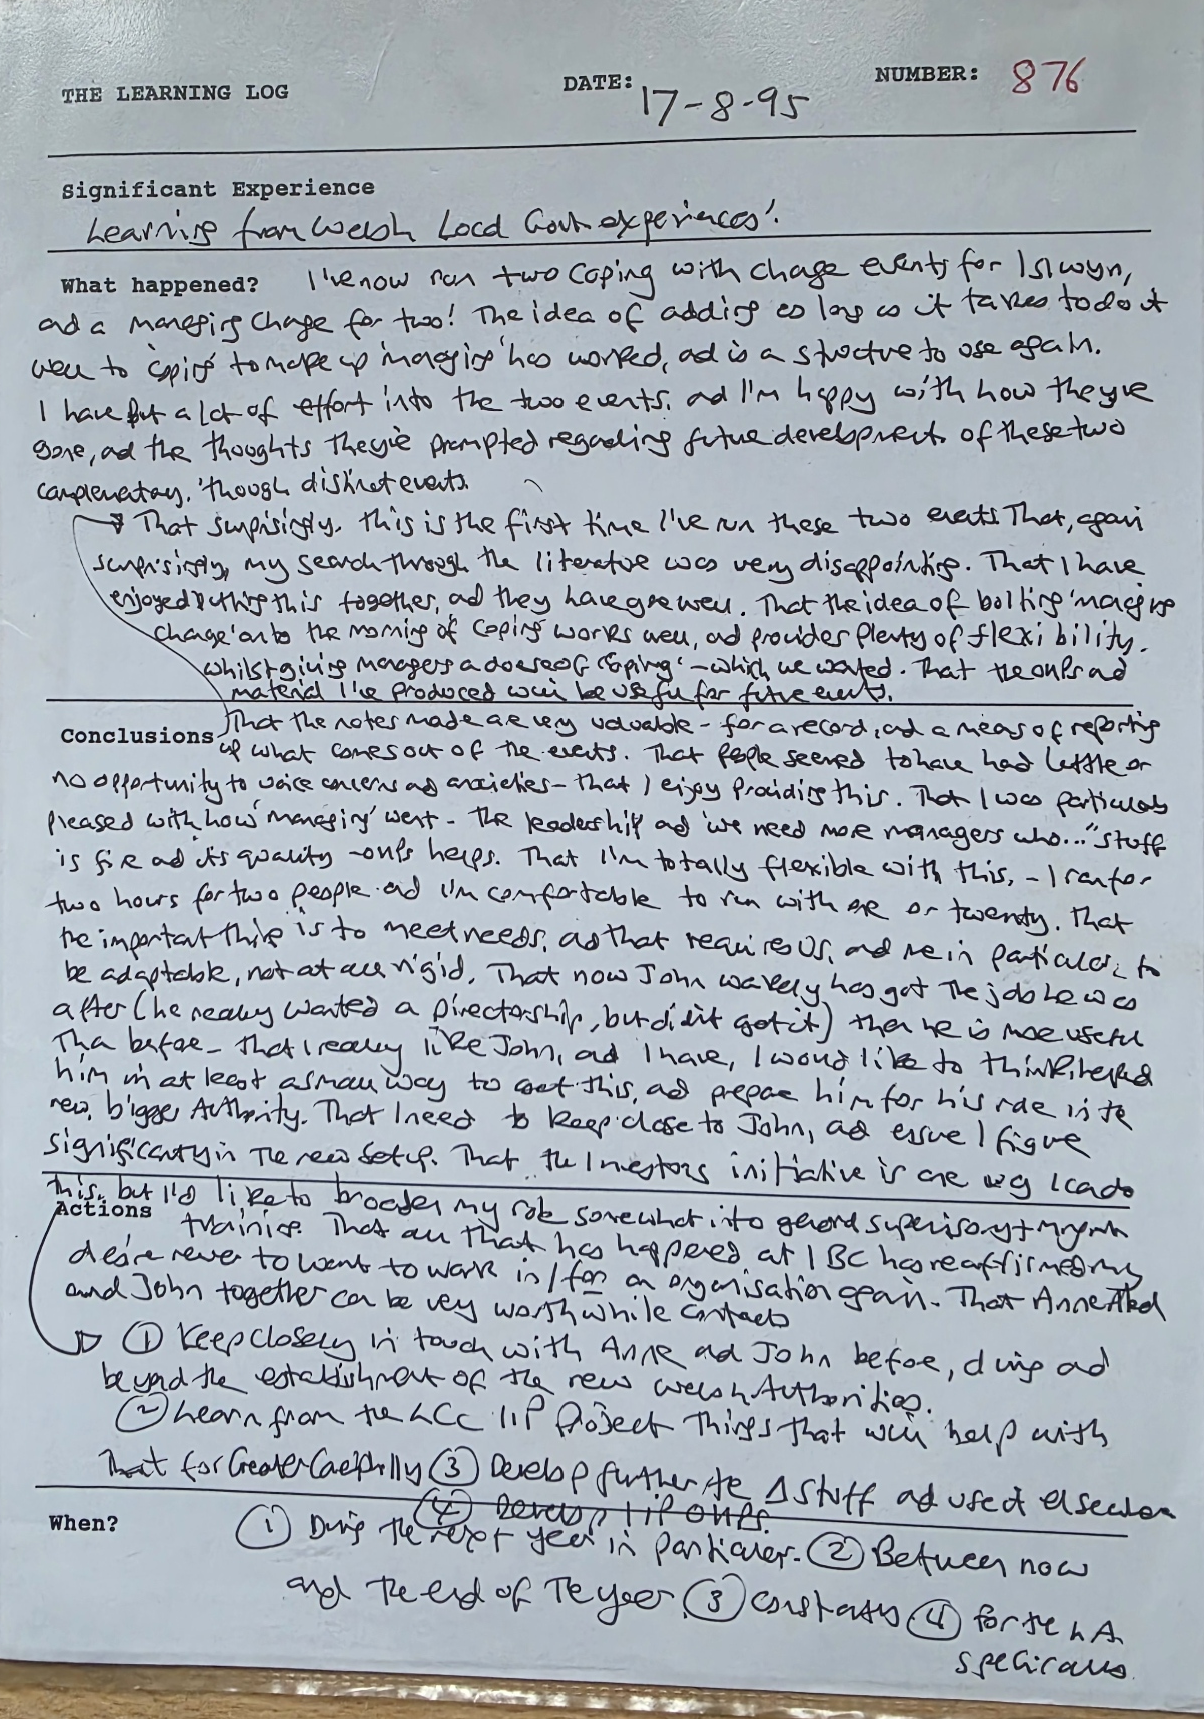 THE LEARNING LOG DATE: 17-8-95 NUMBER: 876
Significant Experience
Learning from Welsh Local Govt experiences'.
What happened? I've now run two Coping with Change events for Islwyn,
and a managing change for two! The idea of adding as long as it takes to do it
well to 'coping' to make up 'managing' has worked, and is a structure to use again.
I have put a lot of effort into the two events, and I'm happy with how they've
gone, and the thoughts they've prompted regarding future development of these two
complementary, 'though distinct events.
That surprisingly, this is the first time I've run these two events That, again
surprisingly, my search through the literature was very disappointing. That I have
enjoyed putting this together, and they have gone well. That the idea of bolting 'managing
change' onto the morning of 'coping' works well, and provides plenty of flexibility.
whilst giving managers a dose of 'coping' - which we wanted. That the OHPs and
material I've produced will be useful for future events.
Conclusions That the notes made are very valuable - for a record, and a means of reporting
up what comes out of the events. That people seemed to have had little or
no opportunity to voice concerns and anxieties - that I enjoy providing this. That I was particularly
pleased with how 'managing' went - The leadership and 'we need more managers who..." stuff
is fine and its quality - OHPs helps. That I'm totally flexible with this, - I ran for
two hours for two people and I'm comfortable to run with one or twenty. That
the important thing is to meet needs, and that requires us, and me in particular, to
be adaptable, not at all rigid. That now John Wakely has got the job he was
after (he really wanted a Directorship, but didn't get it) then he is more useful
than before - that I really like John, and I have, I would like to think, helped
him in at least a small way to get this, and prepare him for his role in the
new, bigger Authority. That I need to keep close to John, and ensure I figure
significantly in the new setup. That the Investors initiative is one way I can do
this, but I'd like to broaden my role somewhat into general supervisory + mngmt
Actions training. That all that has happened at IBC has reaffirmed my
desire never to want to work in/for an organisation again. That Anne
and John together can be very worthwhile contacts
① Keep closely in touch with Anne and John before, during and
beyond the establishment of the new Welsh Authorities.
② Learn from the LCC IIP Project things that will help with
that for Greater Caerphilly ③ Develop further the Δ stuff and used it elsewhere
④ Develop IIP OHPs.
When? ① During the next year in particular. ② Between now
and the end of the year ③ Constantly ④ for the LA
specifically.